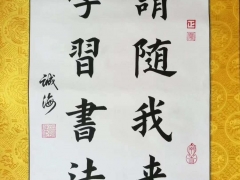 請隨我来
學習書法
誠海